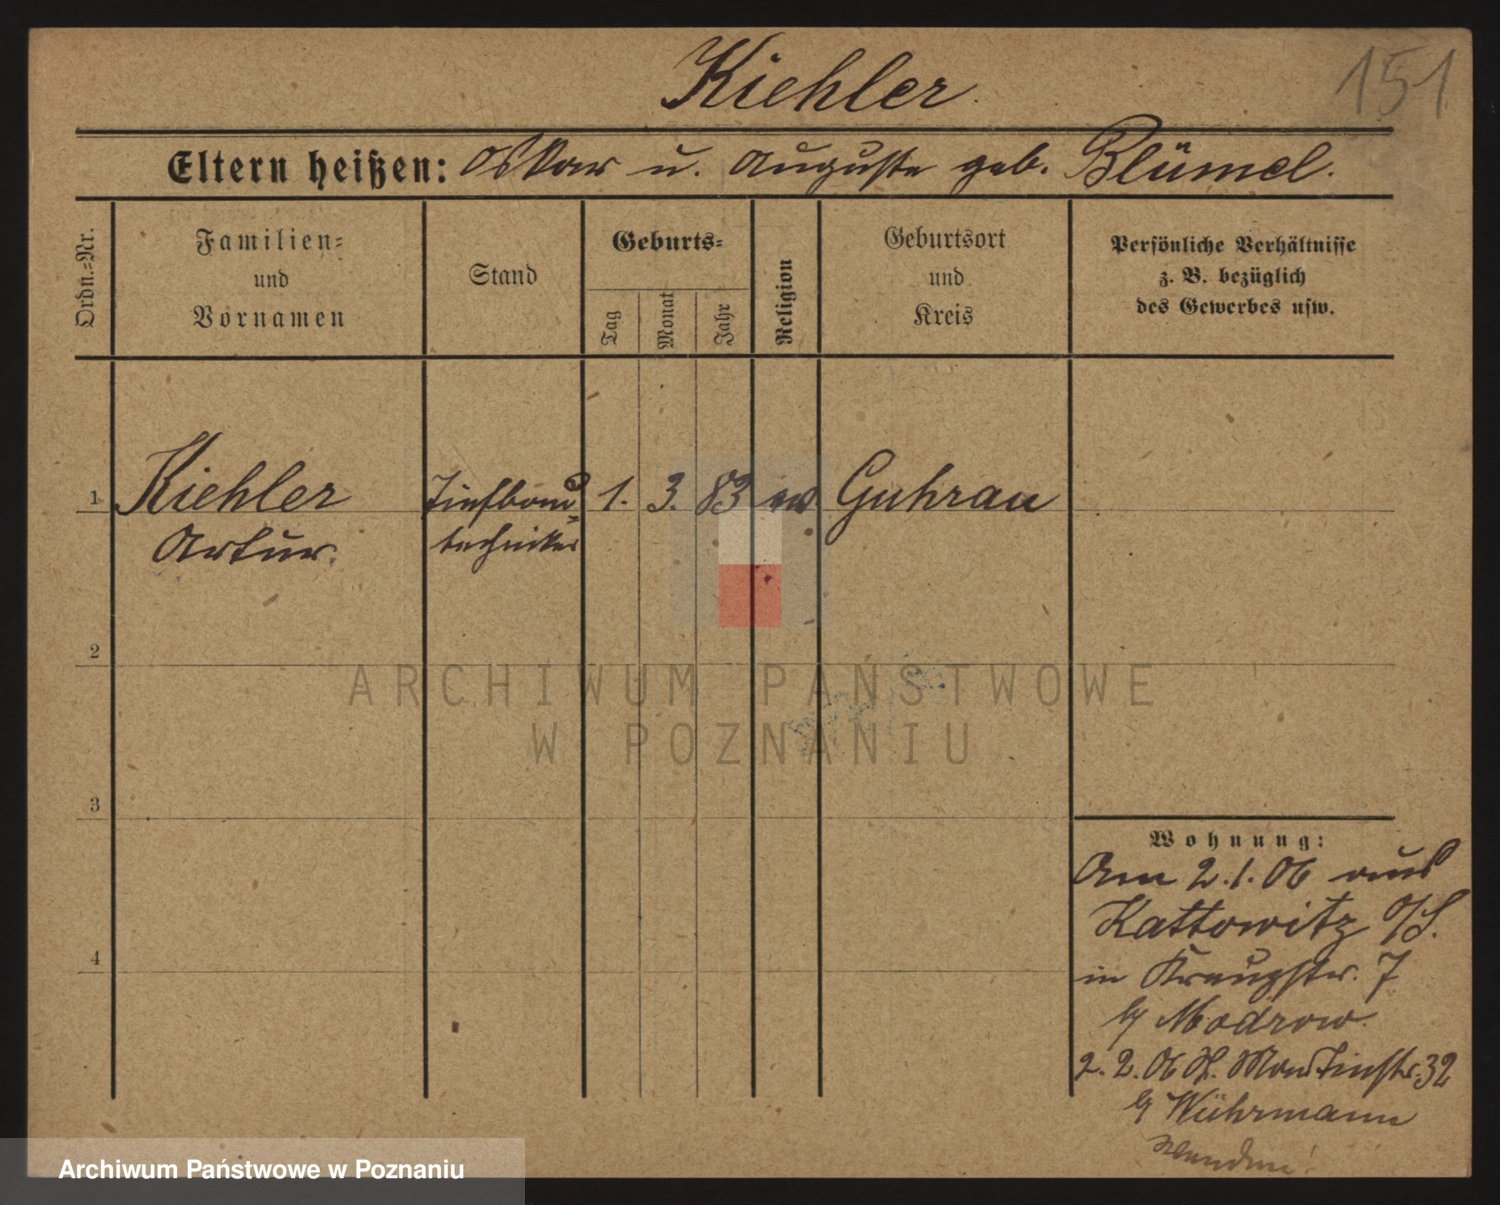 151
Kiehler.
Eltern heißen: Oskar u. Auguste geb. Blümel.
Ordn.=Nr.
Familien= und Vornamen
Stand
Geburts=
Tag
Monat
Jahr
Religion
Geburtsort und Kreis
Persönliche Verhältnisse
z. B. bezüglich
des Gewerbes usw.
1 Kiehler Tiefbau= 1. 3. 83 ev. Guhrau
Artur. techniker
2
3
4
Wohnung:
Am 2.1.06 aus
Kattowitz O/S.
in Kreuzstr. 7
b/ Modrow.
2.2.06 St. Martinstr. 32
b/ Wührmann
Wenden!
ARCHIWUM PAŃSTWOWE
W POZNANIU
Archiwum Państwowe w Poznaniu